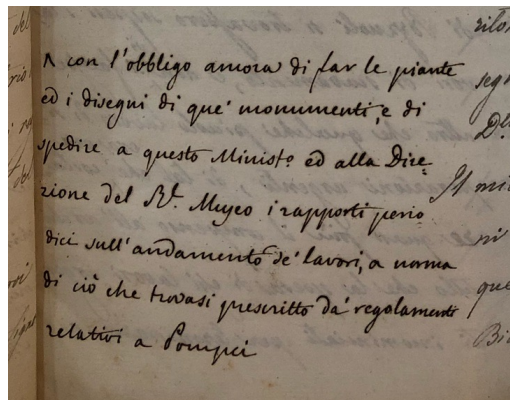 ^ con l'obbligo ancora di far le piante
ed i disegni di que' monumenti, e di
spedire a questo Minist.o ed alla Dire=
zione del Rl. Museo i rapporti perio
dici sull'andamento de' lavori, a norma
di ciò che trovasi prescritto da' regolamenti
relativi a Pompei